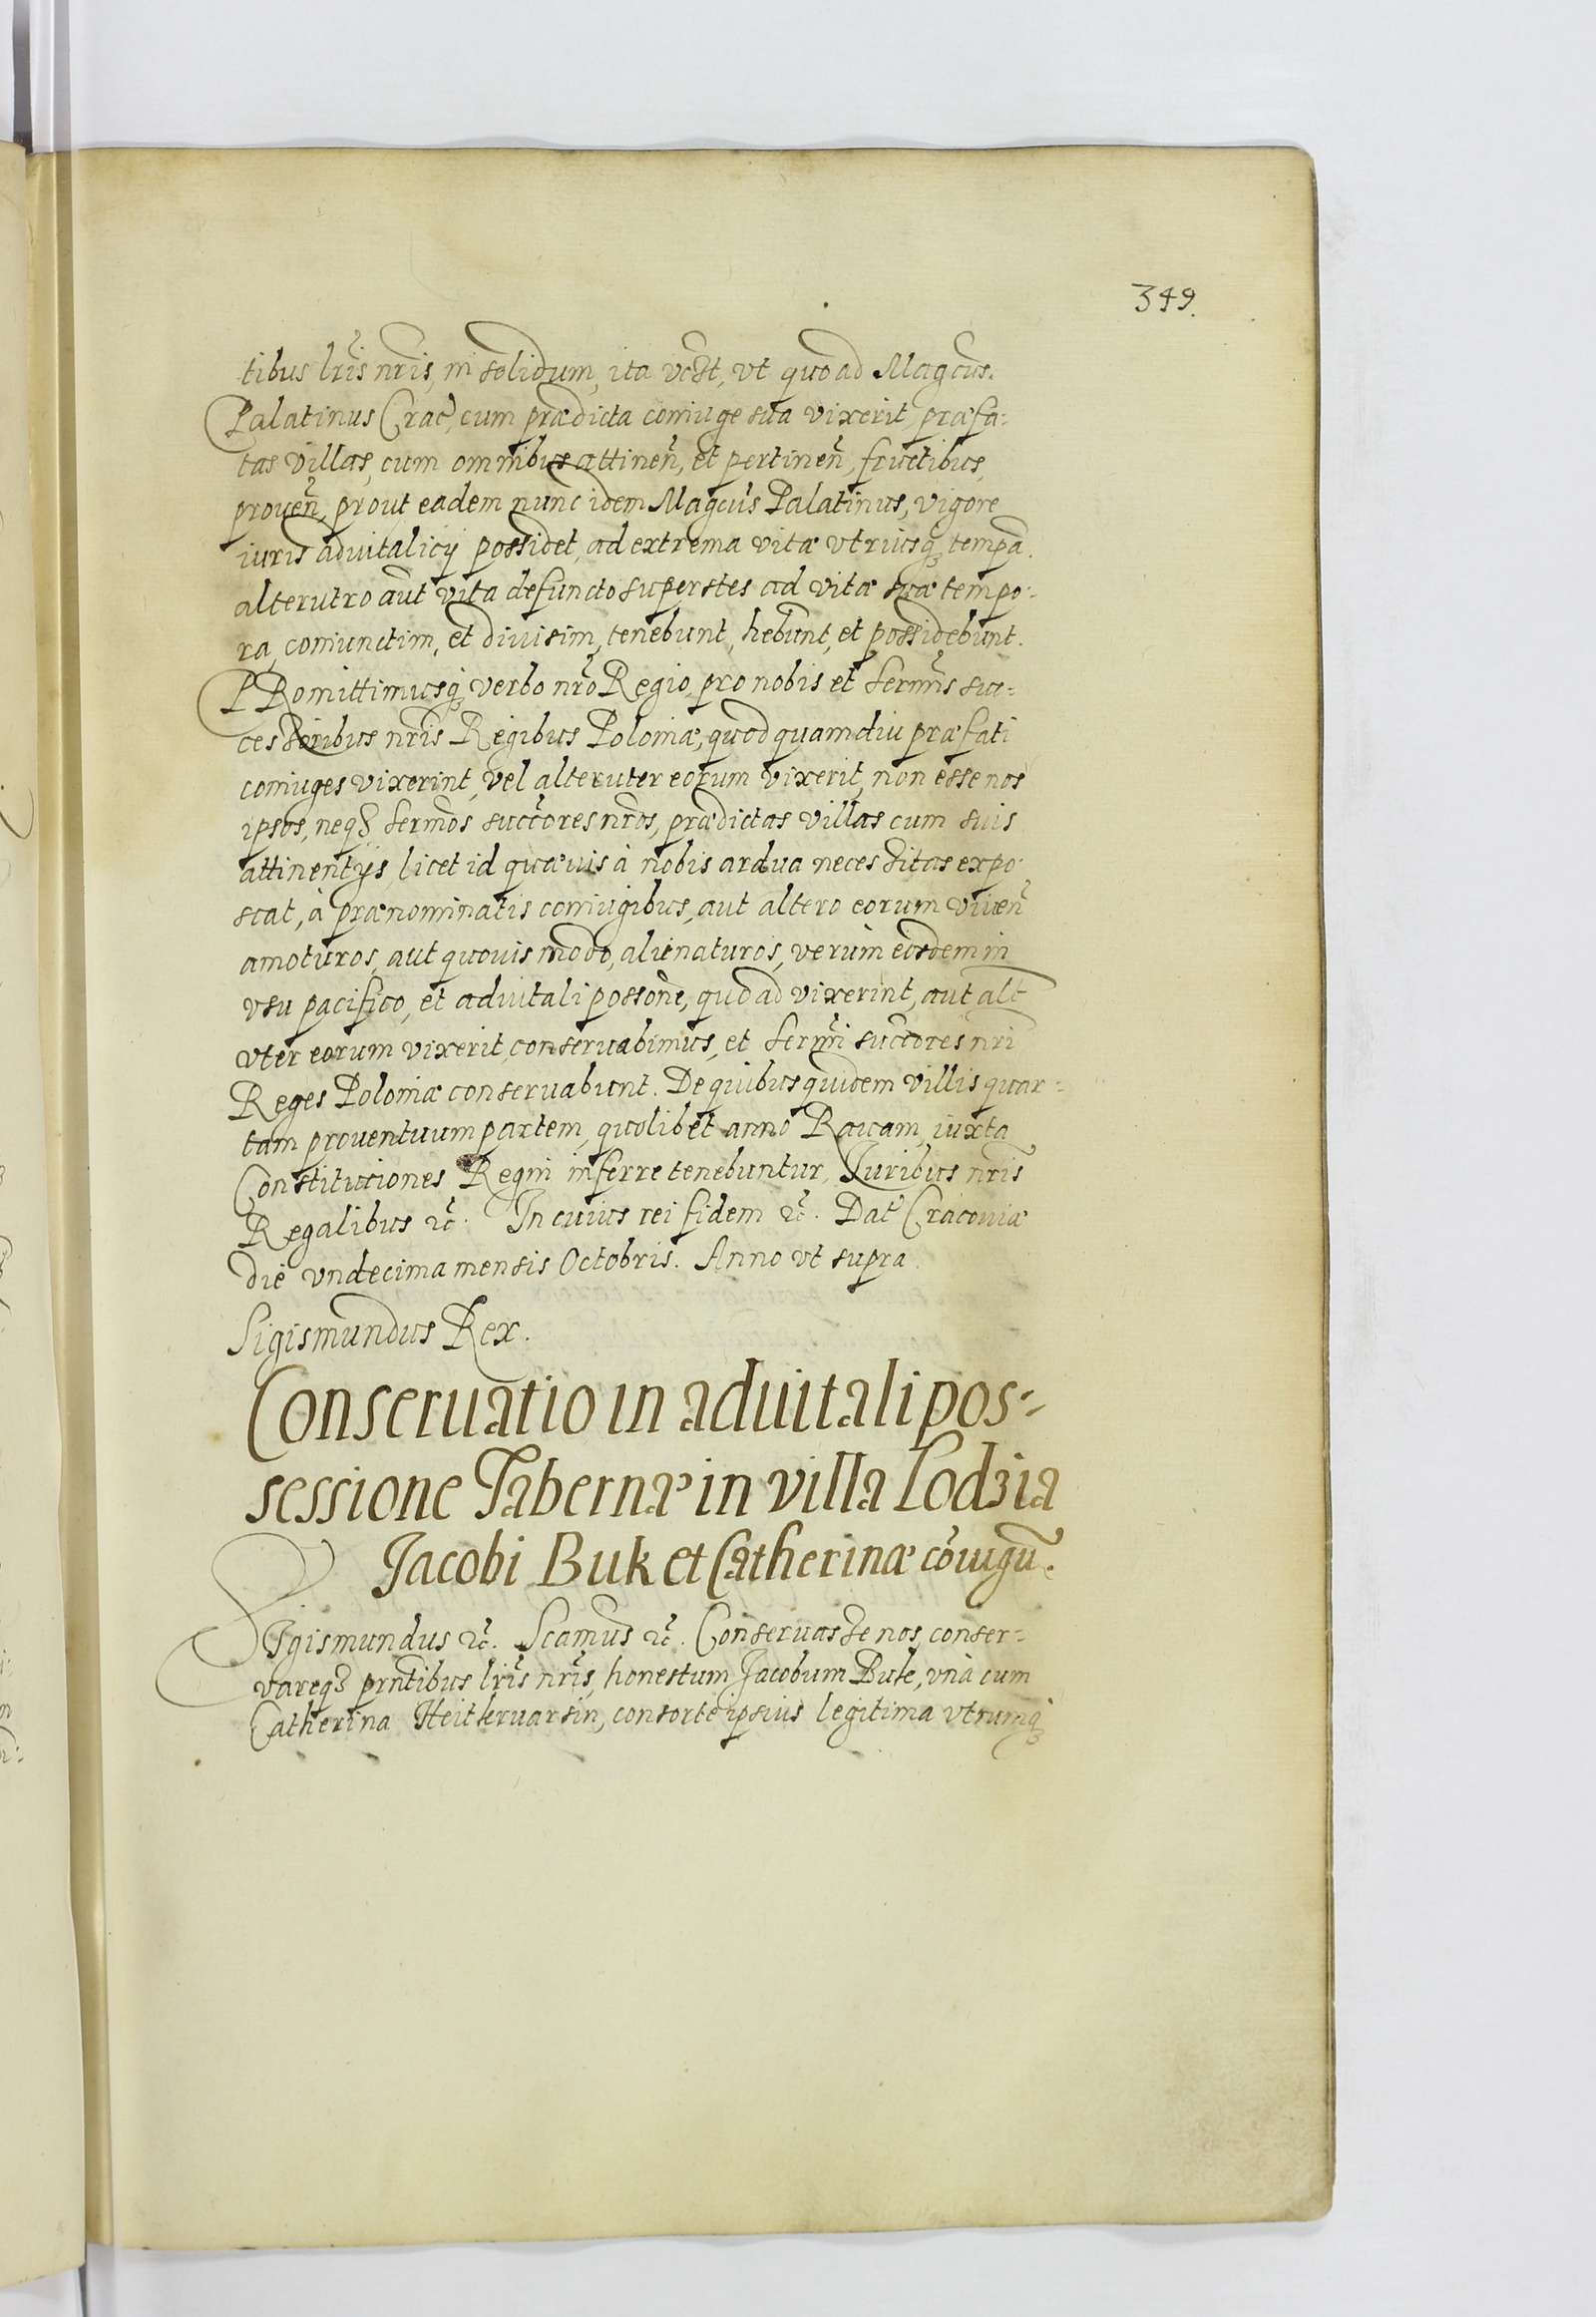 349.
tibus lris nris, in solidum, ita vt st, vt quoad Magcus.
Palatinus Crac, cum prædicta coniuge sua vixerit, præfa:
tas villas, cum omnibus attinen, et pertinen, fructibus,
prouen, prout eadem nunc idem Magcus Palatinus, vigore
iuris aduitalicij possidet, ad extrema vitæ vtriusq tempa.
alterutro aut vita defuncto superstes ad vitæ suæ tempo:
ra, coniunctim, et diuisim, tenebunt, hebunt, et possidebunt.
PRomittimusq verbo nro Regio, pro nobis et Sermis suc:
cessoribus nris Regibus Poloniæ, quod quamdiu præfati
coniuges vixerint, vel alteruter eorum vixerit, non esse nos
ipsos, neq Sermos succores nros, prædictas villas cum suis
attinentijs, licet id quæuis à nobis ardua necessitas expo:
scat, à prænominatis coniugibus, aut altero eorum viuen
amoturos, aut quouis modo, alienaturos, verùm eosdem in
vsu pacifico, et aduitali possone, quoad vixerint, aut alt
vter eorum vixerit, conseruabimus, et Sermi succores nri
Reges Poloniæ conseruabunt. De quibus quidem villis quar:
tam prouentuum partem, quolibet anno Rauam, iuxta
Constitutiones Regni inferre tenebuntur, Iuribus nris
Regalibus &c. In cuius rei fidem &c. Dat Cracouiæ
die vndecima mensis Octobris. Anno vt supra.
Sigismundus Rex.
Conseruatio in aduitali pos-
sessione Tabernæ in villa Lodzia
Jacobi Buk et Catherinæ coiugu.
SIgismundus &c. Scamus &c. Conseruasse nos, conser:
vareq prntibus lris nris, honestum Jacobum Buk, vnà cum
Catherina, consorte ipsius legitima vtrumq